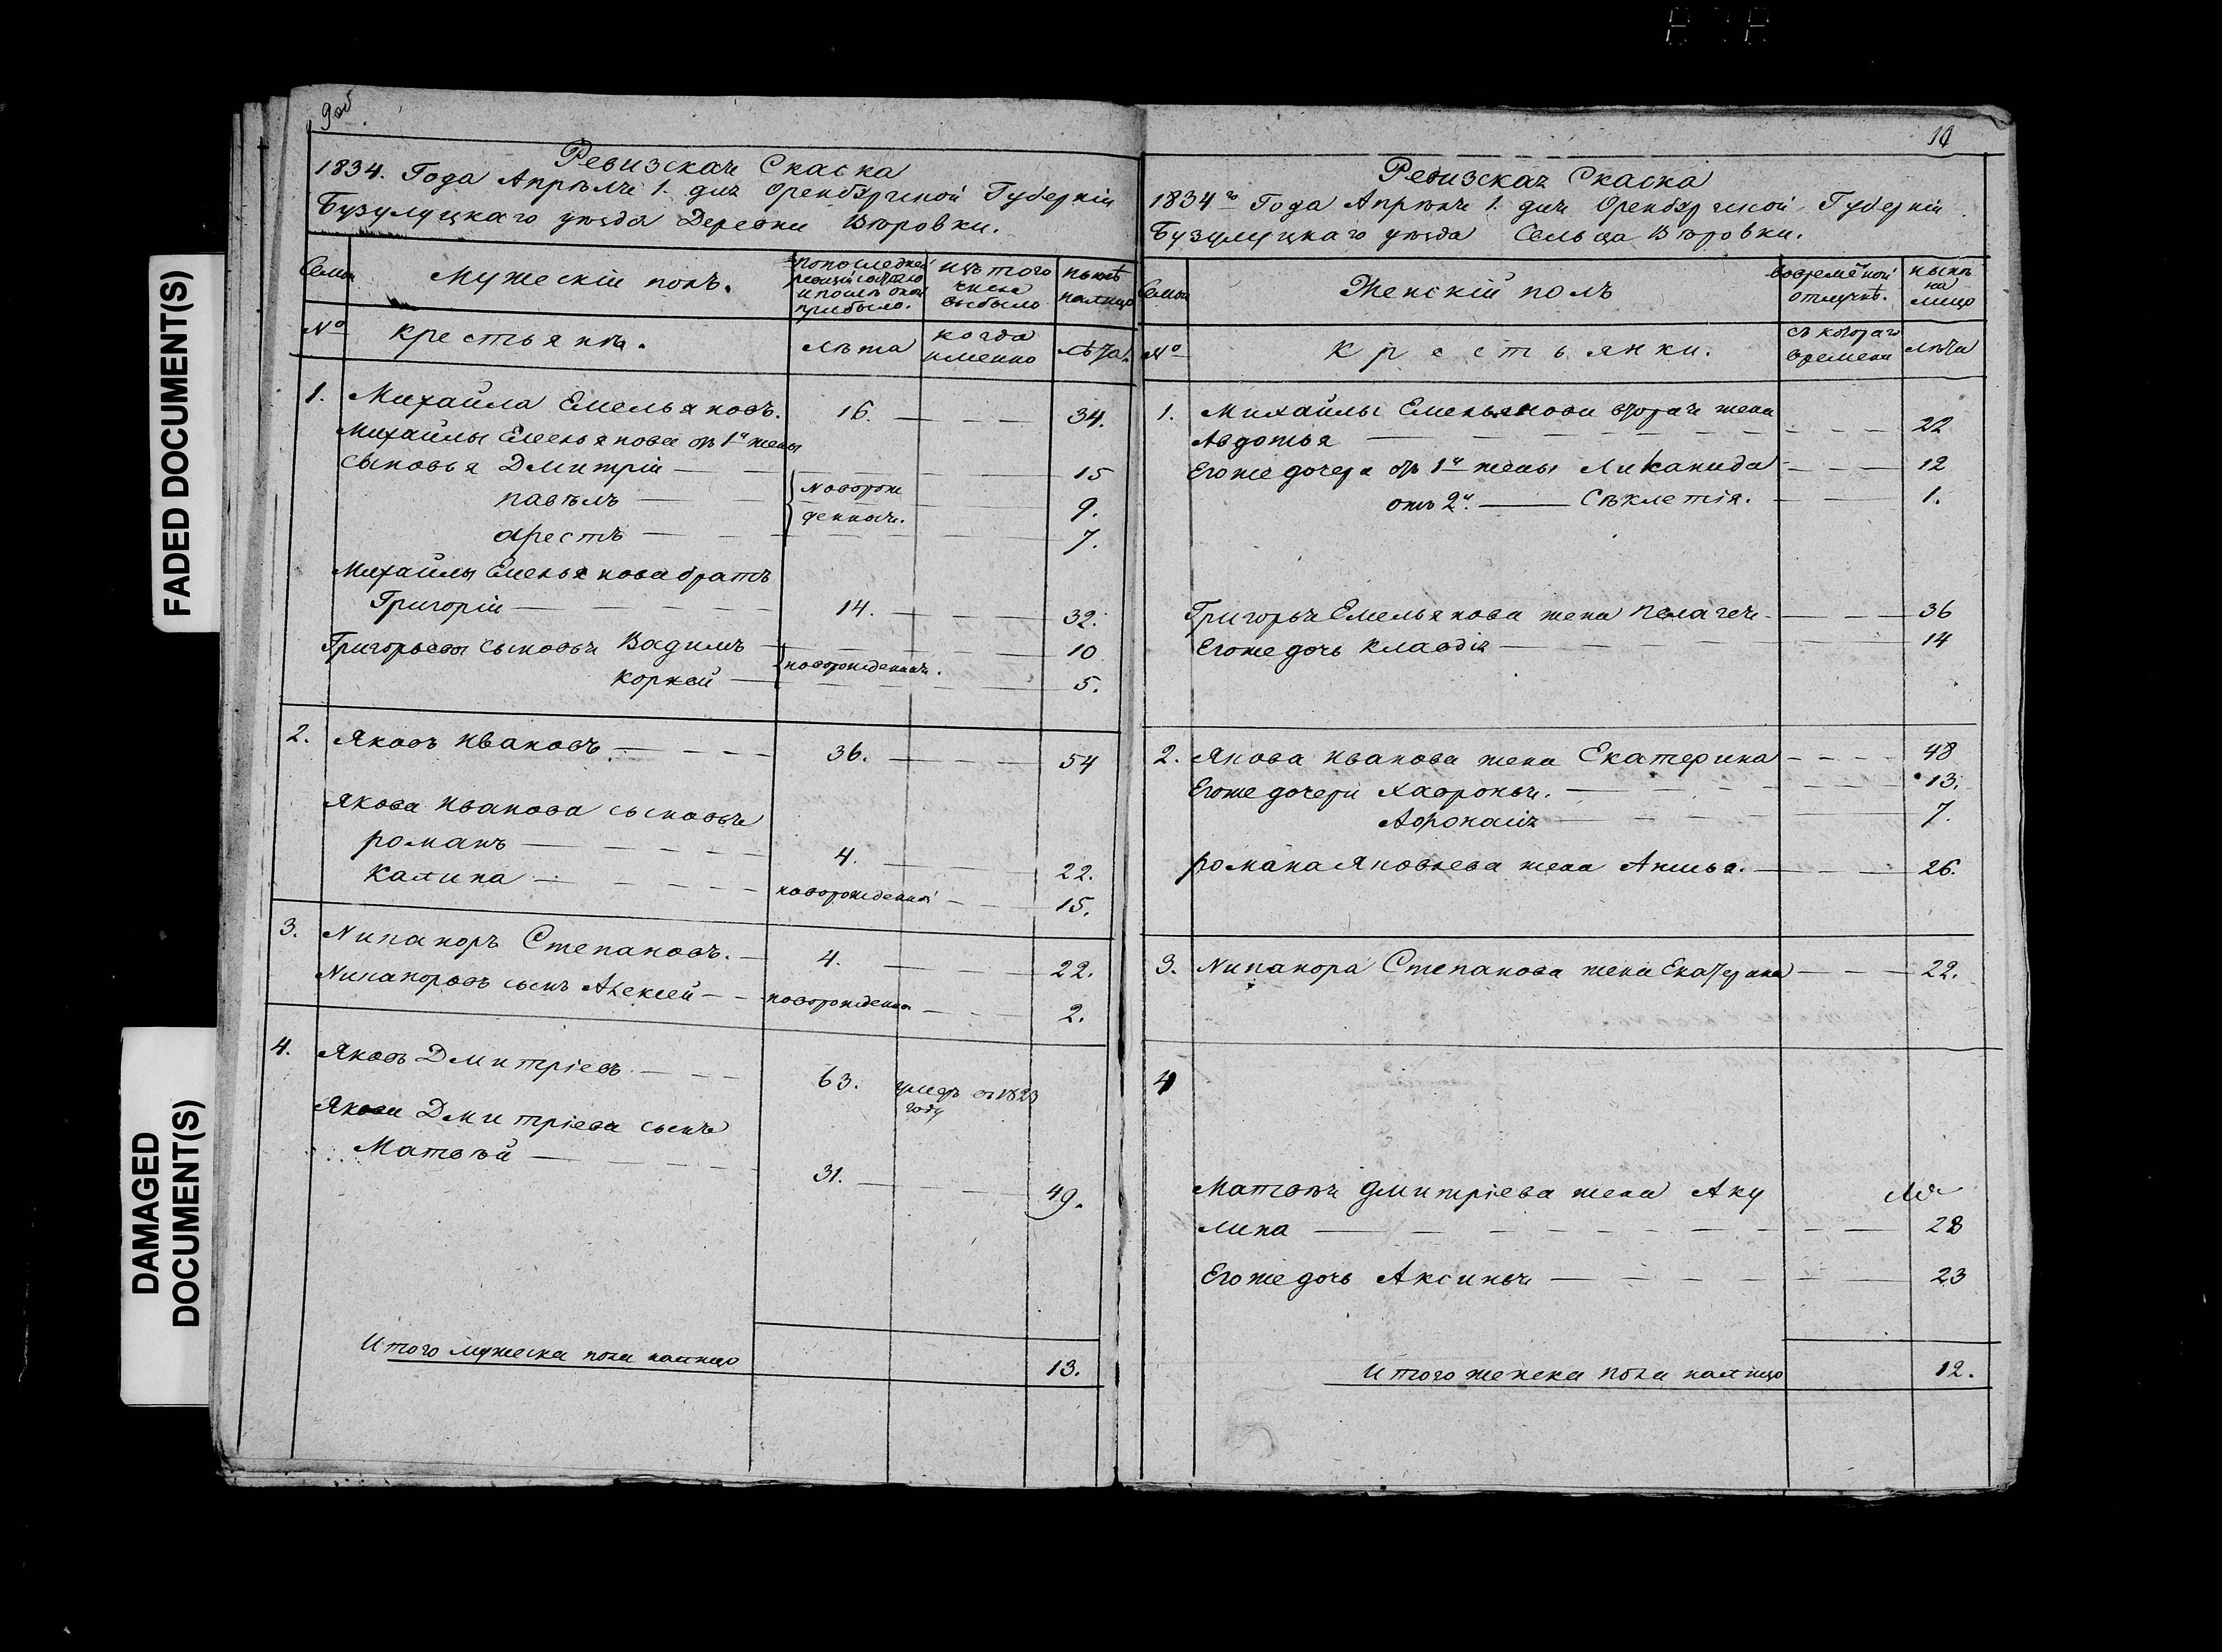 9об.
Ревизская Скаска
1834. Года Апрѣля 1. дня Оренбургской Губерніи
Бузулуцкаго уѣзда Деревни Вѣровки.
Семьи
Мужескій полъ.
попоследней
ревизіи состояло
и послѣ оной
прибыло.
изъ того
числа
выбыло
нынѣ
налицо
№
крестьянѣ.
лѣта
когда
именно
лѣта.
1. Михайла Емельяновъ. 16. 34.
Михайлы Емельянова отъ 1й жены
сыновья Дмитрій 15
павѣлъ новорож 9.
денныя.
арестъ 7.
Михайлы Емельянова братъ
Григорій 14. 32.
Григорьевы сыновья Вадимъ 10
новорожденныя.
корней 5.
2. Яковъ Ивановъ. 36. 54
Якова Иванова сыновья
романъ 4. 22.
калина новорожденной 15.
3. Никаноръ Степановъ. 4. 22.
Никаноровъ сынъ Алексей новорожденный 2.
4. Яковъ Дмитріевъ 63. умеръ въ 1823
году
Якова Дмитріева сынъ
Матвѣй 31. 49.
Итого мужеска пола налицо 13.
10
Ревизская Скаска
1834го Года Апрѣля 1. дня Оренбургской Губерніи
Бузулуцкаго уѣзда Сельца Вѣровки.
Семьи
Женскій полъ
вовремѣнной
отлучкѣ.
нынѣ
на
лицо
№
крестьянки.
съ котораго
времени
лѣта
1. Михайлы Емельянова вторая жена
Авдотья 22
Егоже дочери отъ 1й жены Ликанида 12
отъ 2й. Сѣклетія. 1.
Григорья Емельянова жена пелагея 36
Егоже дочь клавдія 14
2. Якова Иванова жена Екатерина 48
Егоже дочери Хавронья. 13.
Афронасія 7.
романа Яковлева жена Анисья. 26.
3. Никанора Степанова жена Екатерина 22.
4
Матвѣя Дмитріева жена Аку
лина 28
Егоже дочь Аксинья 23
Итого женска пола налицо 12.
FADED DOCUMENT(S)
DAMAGED
DOCUMENT(S)